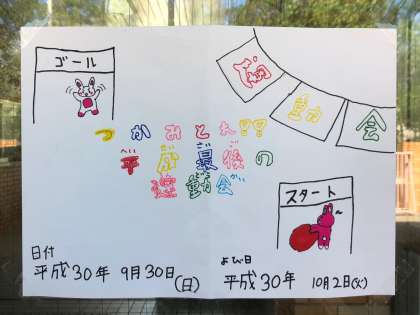 ゴール
運動会
つかみとれ!?!?
へい せい さい ご
平成最後の
うん どう かい
運動会
スタート
日付
平成30年 9月30日(日)
よび日
平成30年 10月2日(火)